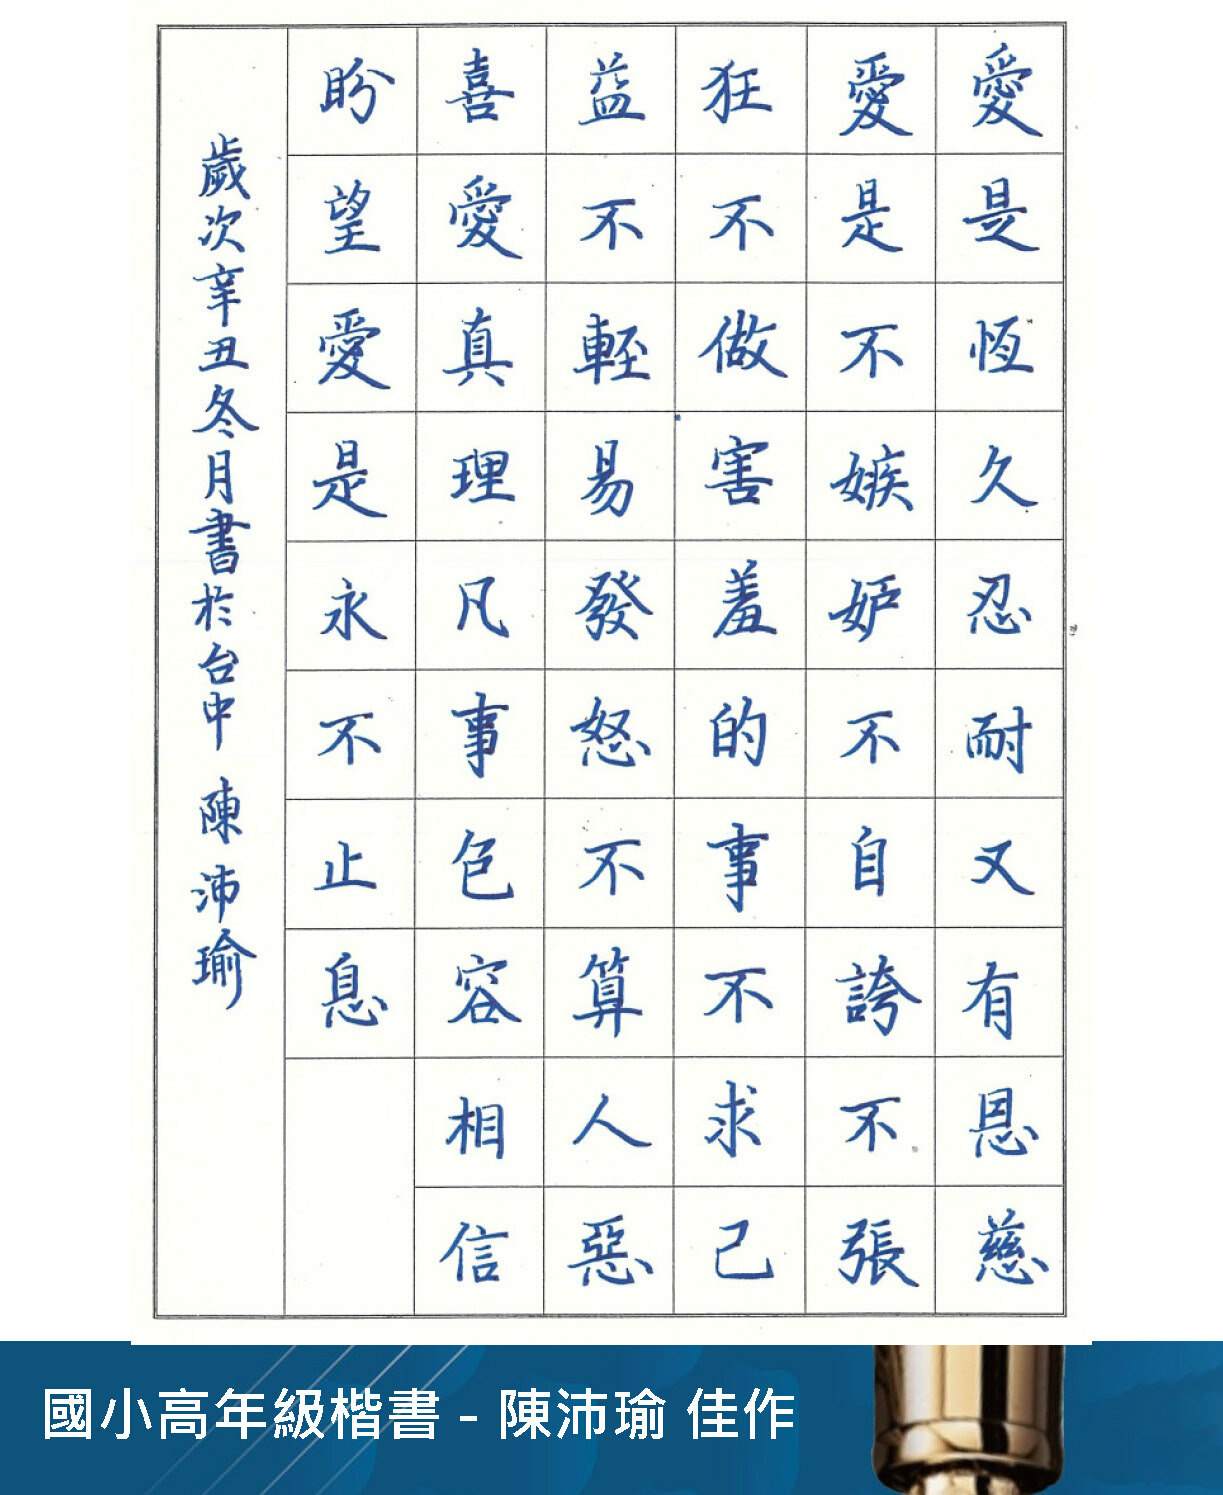 愛是恆久忍耐又有恩慈
愛是不嫉妒不自誇不張
狂不做害羞的事不求己
益不輕易發怒不算人惡
喜愛真理凡事包容相信
盼望愛是永不止息
歲次辛丑冬月書於台中 陳沛瑜
國小高年級楷書 - 陳沛瑜 佳作